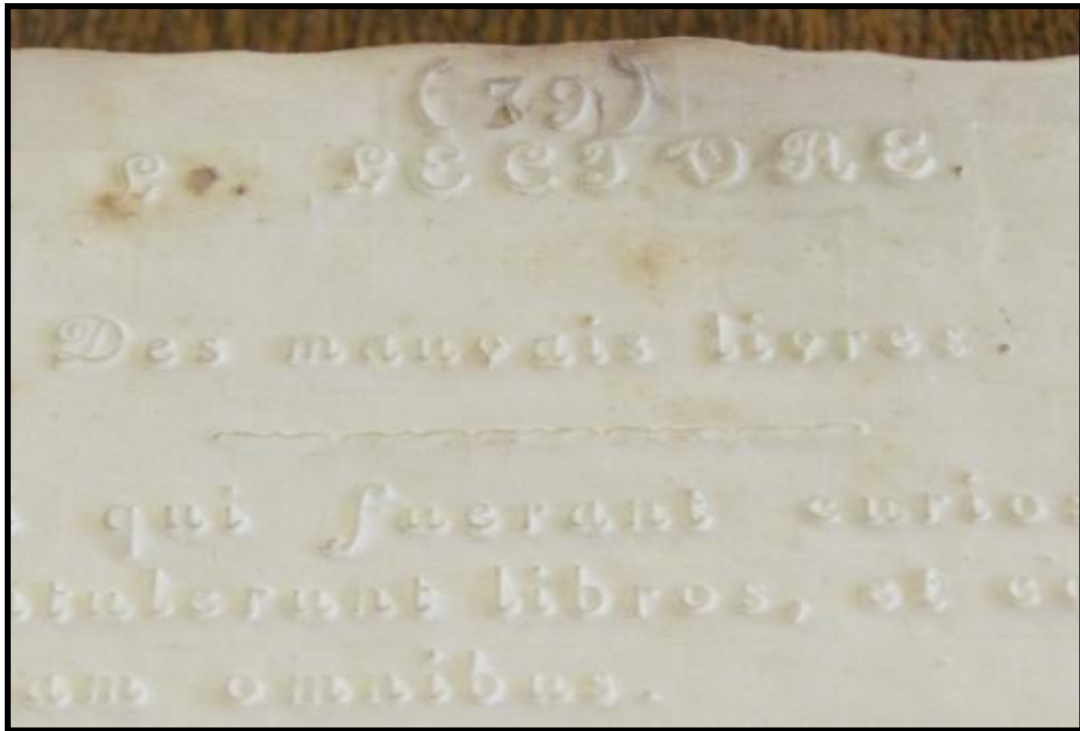 (39)
L. LECTURE.
Des mauvais livres.
qui fuerant curios
ntulerunt libros, et co
am omnibus.